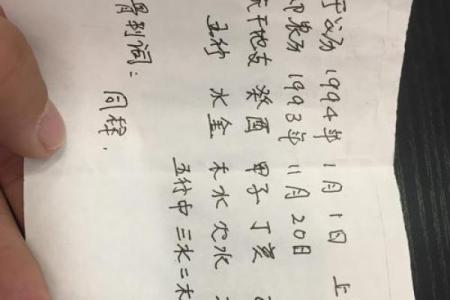 公历 1994年 1月 1日 上
农历 1993年 11月 20日
干地支 癸酉 甲子 丁亥
五行 水金 木水 火水
五行中 三水二木